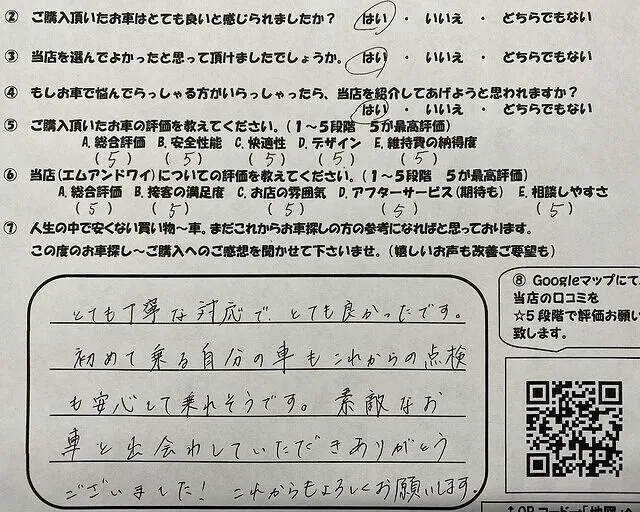 ② ご購入頂いたお車はとても良いと感じられましたか？ はい ・ いいえ ・ どちらでもない
③ 当店を選んでよかったと思って頂けましたでしょうか。 はい ・ いいえ ・ どちらでもない
④ もしお車で悩んでらっしゃる方がいらっしゃったら、当店を紹介してあげようと思われますか？
はい ・ いいえ ・ どちらでもない
⑤ ご購入頂いたお車の評価を教えてください。（１～５段階 ５が最高評価）
A. 総合評価 B. 安全性能 C. 快適性 D. デザイン E. 維持費の納得度
(5) (5) (5) (5) (5)
⑥ 当店（エムアンドワイ）についての評価を教えてください。（１～５段階 ５が最高評価）
A. 総合評価 B. 接客の満足度 C. お店の雰囲気 D. アフターサービス（期待も） E. 相談しやすさ
(5) (5) (5) (5) (5)
⑦ 人生の中で安くない買い物～車。まだこれからお車探しの方の参考になればと思っております。
この度のお車探し～ご購入へのご感想を聞かせて下さいませ。（嬉しいお声も改善ご要望も）
とても丁寧な対応で、とても良かったです。
初めて乗る自分の車もこれからの点検
も安心して乗れそうです。素敵なお
車と出会わしていただきありがとう
ございました！ これからもよろしくお願いします。
⑧ Googleマップにて、
当店の口コミを
☆５段階で評価お願い
致します。
↑QRコード→「地図」へ